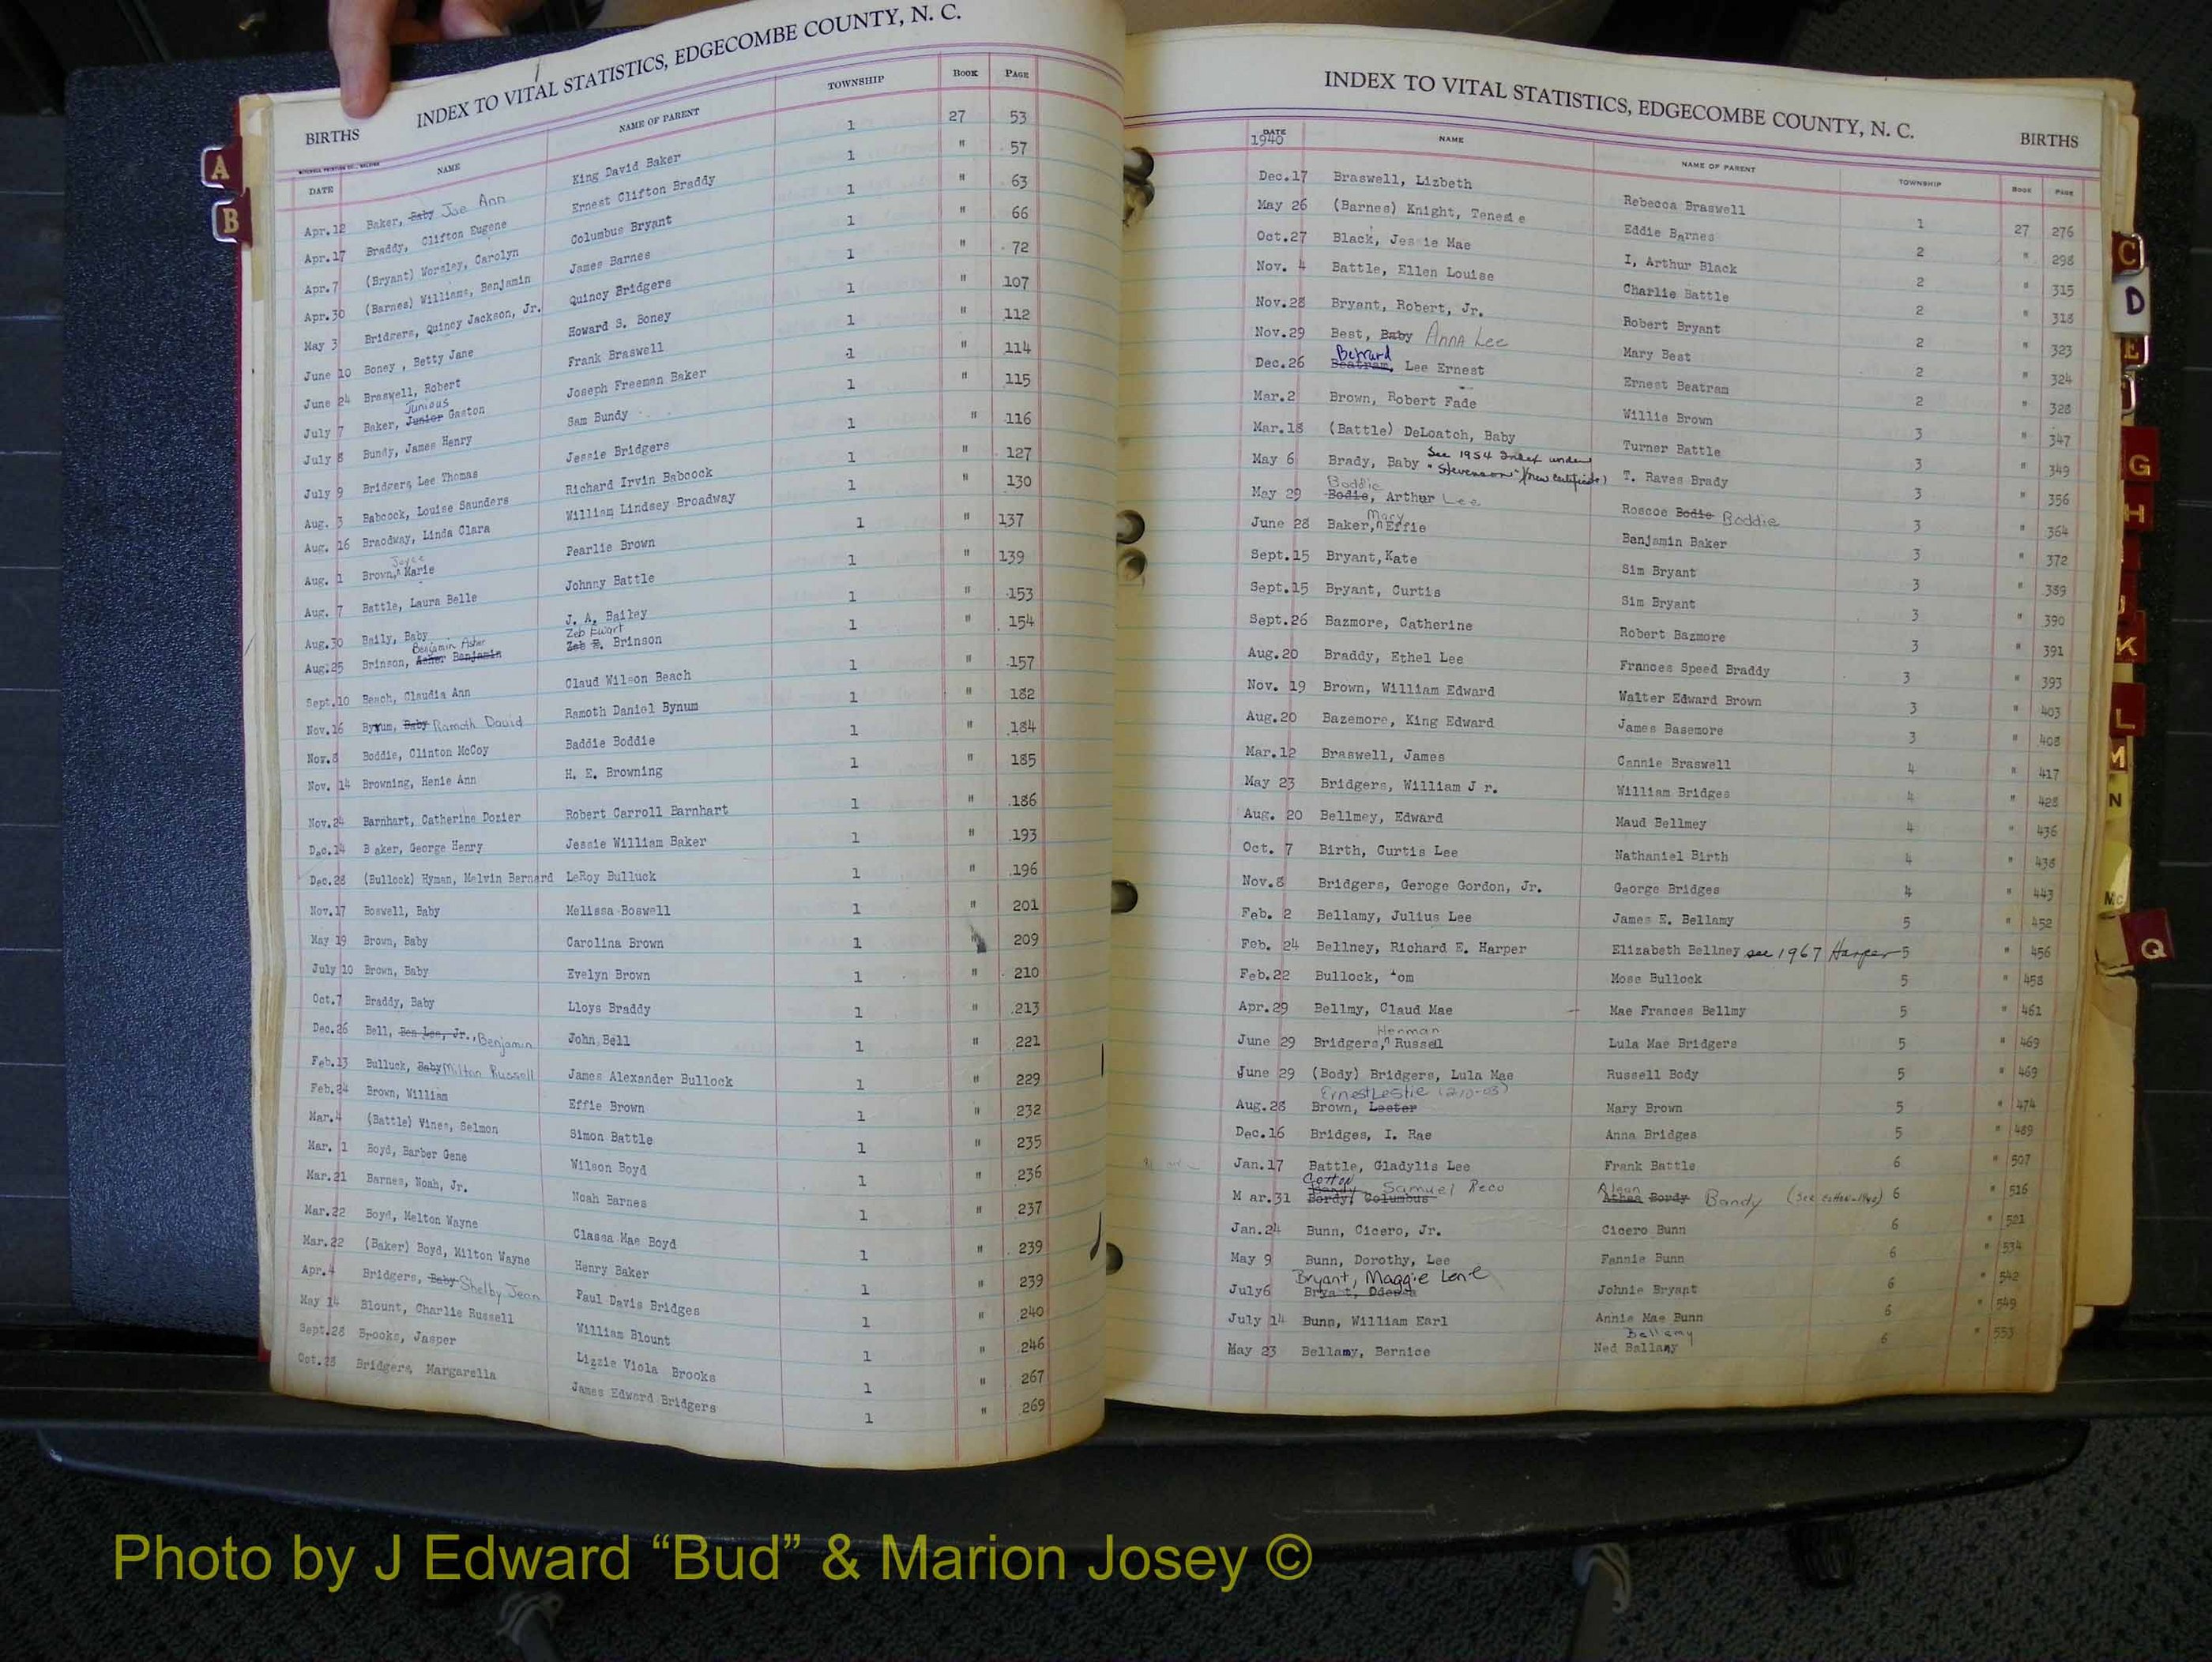 INDEX TO VITAL STATISTICS, EDGECOMBE COUNTY, N. C.
BIRTHS
DATE NAME NAME OF PARENT TOWNSHIP BOOK PAGE
Apr.12 Baker, Baby Joe Ann King David Baker 1 27 53
Apr.17 Braddy, Clifton Eugene Ernest Clifton Braddy 1 " 57
Apr.7 (Bryant) Worsley, Carolyn Columbus Bryant 1 " 63
Apr.30 (Barnes) Williams, Benjamin James Barnes 1 " 66
May 3 Bridgers, Quincy Jackson, Jr. Quincy Bridgers 1 " 72
June 10 Boney , Betty Jane Howard S. Boney 1 " 107
June 24 Braswell, Robert Frank Braswell 1 " 112
Junious
July 7 Baker, Junior Gaston Joseph Freeman Baker 1 " 114
July 8 Bundy, James Henry Sam Bundy 1 " 115
July 9 Bridgers, Lee Thomas Jessie Bridgers 1 " 116
Aug. 3 Babcock, Louise Saunders Richard Irvin Babcock 1 " 127
Aug. 16 Braodway, Linda Clara William Lindsey Broadway 1 " 130
Joyce
Aug. 1 Brown, Marie Pearlie Brown 1 " 137
Aug. 7 Battle, Laura Belle Johnny Battle 1 " 139
Aug.30 Baily, Baby J. A. Bailey 1 " 153
Benjamin Asher Zeb Ewart
Aug.25 Brinson, Asher Benjamin Zeb E. Brinson 1 " 154
Sept.10 Beach, Claudia Ann Claud Wilson Beach 1 " 157
Nov.16 Bynum, Baby Ramoth David Ramoth Daniel Bynum 1 " 182
Nov.8 Boddie, Clinton McCoy Baddie Boddie 1 " 184
Nov. 14 Browning, Henie Ann H. E. Browning 1 " 185
Nov.24 Barnhart, Catherine Dozier Robert Carroll Barnhart 1 " 186
Dec.14 Baker, George Henry Jessie William Baker 1 " 193
Dec.28 (Bullock) Hyman, Melvin Bernard LeRoy Bulluck 1 " 196
Nov.17 Boswell, Baby Melissa Boswell 1 " 201
May 19 Brown, Baby Carolina Brown 1 " 209
July 10 Brown, Baby Evelyn Brown 1 " 210
Oct.7 Braddy, Baby Lloys Braddy 1 " 213
Dec.26 Bell, Ben Lee, Jr., Benjamin John Bell 1 " 221
Feb.13 Bulluck, Baby Milton Russell James Alexander Bullock 1 " 229
Feb.24 Brown, William Effie Brown 1 " 232
Mar.4 (Battle) Vines, Selmon Simon Battle 1 " 235
Mar. 1 Boyd, Barber Gene Wilson Boyd 1 " 236
Mar.21 Barnes, Noah, Jr. Noah Barnes 1 " 237
Mar.22 Boyd, Melton Wayne Classa Mae Boyd 1 " 239
Mar.22 (Baker) Boyd, Milton Wayne Henry Baker 1 " 239
Apr.4 Bridgers, Baby Shelby Jean Paul Davis Bridges 1 " 240
May 14 Blount, Charlie Russell William Blount 1 " 246
Sept.28 Brooks, Jasper Lizzie Viola Brooks 1 " 267
Oct.28 Bridgers, Margarella James Edward Bridgers 1 " 269
INDEX TO VITAL STATISTICS, EDGECOMBE COUNTY, N. C.
BIRTHS
DATE NAME NAME OF PARENT TOWNSHIP BOOK PAGE
1940
Dec.17 Braswell, Lizbeth Rebecca Braswell 1 27 276
May 26 (Barnes) Knight, Tenesie Eddie Barnes 2 " 298
Oct.27 Black, Jessie Mae I, Arthur Black 2 " 315
Nov. 4 Battle, Ellen Louise Charlie Battle 2 " 318
Nov.28 Bryant, Robert, Jr. Robert Bryant 2 " 323
Nov.29 Best, Baby Anna Lee Mary Best 2 " 324
Betrard
Dec.26 Beatram, Lee Ernest Ernest Beatram 2 " 328
Mar.2 Brown, Robert Fade Willie Brown 3 " 347
Mar.18 (Battle) DeLoatch, Baby Turner Battle 3 " 349
See 1954 Index under
May 6 Brady, Baby "Stevenson" (new certificate) T. Raves Brady 3 " 356
Boddie
May 29 Bodie, Arthur Lee Roscoe Bodie Boddie 3 " 364
Mary
June 28 Baker, Effie Benjamin Baker 3 " 372
Sept.15 Bryant,Kate Sim Bryant 3 " 389
Sept.15 Bryant, Curtis Sim Bryant 3 " 390
Sept.26 Bazmore, Catherine Robert Bazmore 3 " 391
Aug.20 Braddy, Ethel Lee Frances Speed Braddy 3 " 393
Nov. 19 Brown, William Edward Walter Edward Brown 3 " 403
Aug.20 Bazemore, King Edward James Basemore 3 " 408
Mar.12 Braswell, James Cannie Braswell 4 " 417
May 23 Bridgers, William J r. William Bridges 4 " 428
Aug. 20 Bellmey, Edward Maud Bellmey 4 " 436
Oct. 7 Birth, Curtis Lee Nathaniel Birth 4 " 438
Nov.8 Bridgers, Geroge Gordon, Jr. George Bridges 4 " 443
Feb. 2 Bellamy, Julius Lee James E. Bellamy 5 " 452
Feb. 24 Bellney, Richard E. Harper Elizabeth Bellney see 1967 Harper 5 " 456
Feb.22 Bullock, Tom Moss Bullock 5 " 458
Apr.29 Bellmy, Claud Mae Mae Frances Bellmy 5 " 461
Herman
June 29 Bridgers, Russell Lula Mae Bridgers 5 " 469
June 29 (Body) Bridgers, Lula Mae Russell Body 5 " 469
Ernest Leslie (2-10-03)
Aug.28 Brown, Lester Mary Brown 5 " 474
Dec.16 Bridges, I. Rae Anna Bridges 5 " 489
Jan.17 Battle, Gladylis Lee Frank Battle 6 " 507
Cotton
M ar.31 Bordy, Columbus Samuel Reco Bordy Bandy (see cotton-1940) 6 " 516
Jan.24 Bunn, Cicero, Jr. Cicero Bunn 6 " 521
May 9 Bunn, Dorothy, Lee Fannie Bunn 6 " 534
Bryant, Maggie Lene
July6 Bryant, Odessa Johnie Bryant 6 " 542
July 14 Bunn, William Earl Annie Mae Bunn 6 " 549
Bellamy
May 23 Bellamy, Bernice Ned Ballany 6 " 553
A
B
C
D
E
G
H
J
K
L
M
N
Mc
Q
Photo by J Edward “Bud” & Marion Josey ©